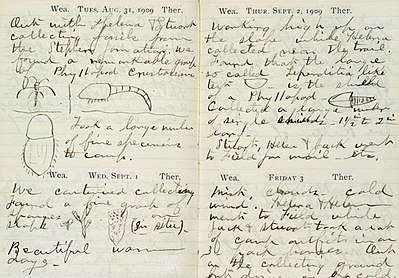 Wea. TUES. AUG. 31, 1909 Ther.
Out with Helena & Stuart
collecting fossils from
the Stephen formation. We
found a remarkable group
of Phyllopod Crustaceans
Took a large number
of fine specimens
to camp.
Wea. WED. SEPT. 1 Ther.
We continued collecting
found a fine group of
sponges on
slope (in situ).
Beautiful warm
days
Wea. THUR. SEPT. 2, 1909 Ther.
Working high up on
the slope while Helena
collected near the trail.
Found that the large
so called Leperditia like
test is the shield
of a Phyllopod
Collected a large number
of single shields 1½ to 2 in
long.
Stuart, Helen & Jack went
to Field for mail etc.
Wea. FRIDAY 3 Ther.
Thick clouds cold
wind. Helena & Helen
went to Field while
Jack & Stuart took a lot
of camp outfit in on
pack horses. Out
on the collecting ground